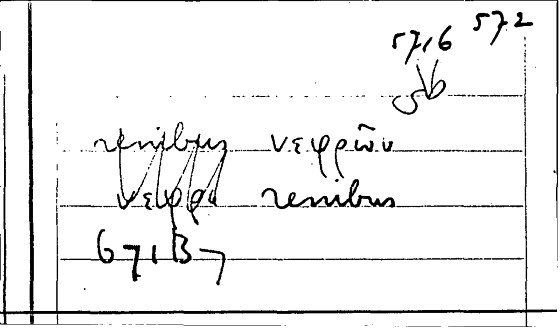 57,6 572
renibus νεφρῶν
νεφρῶ renibus
671B7